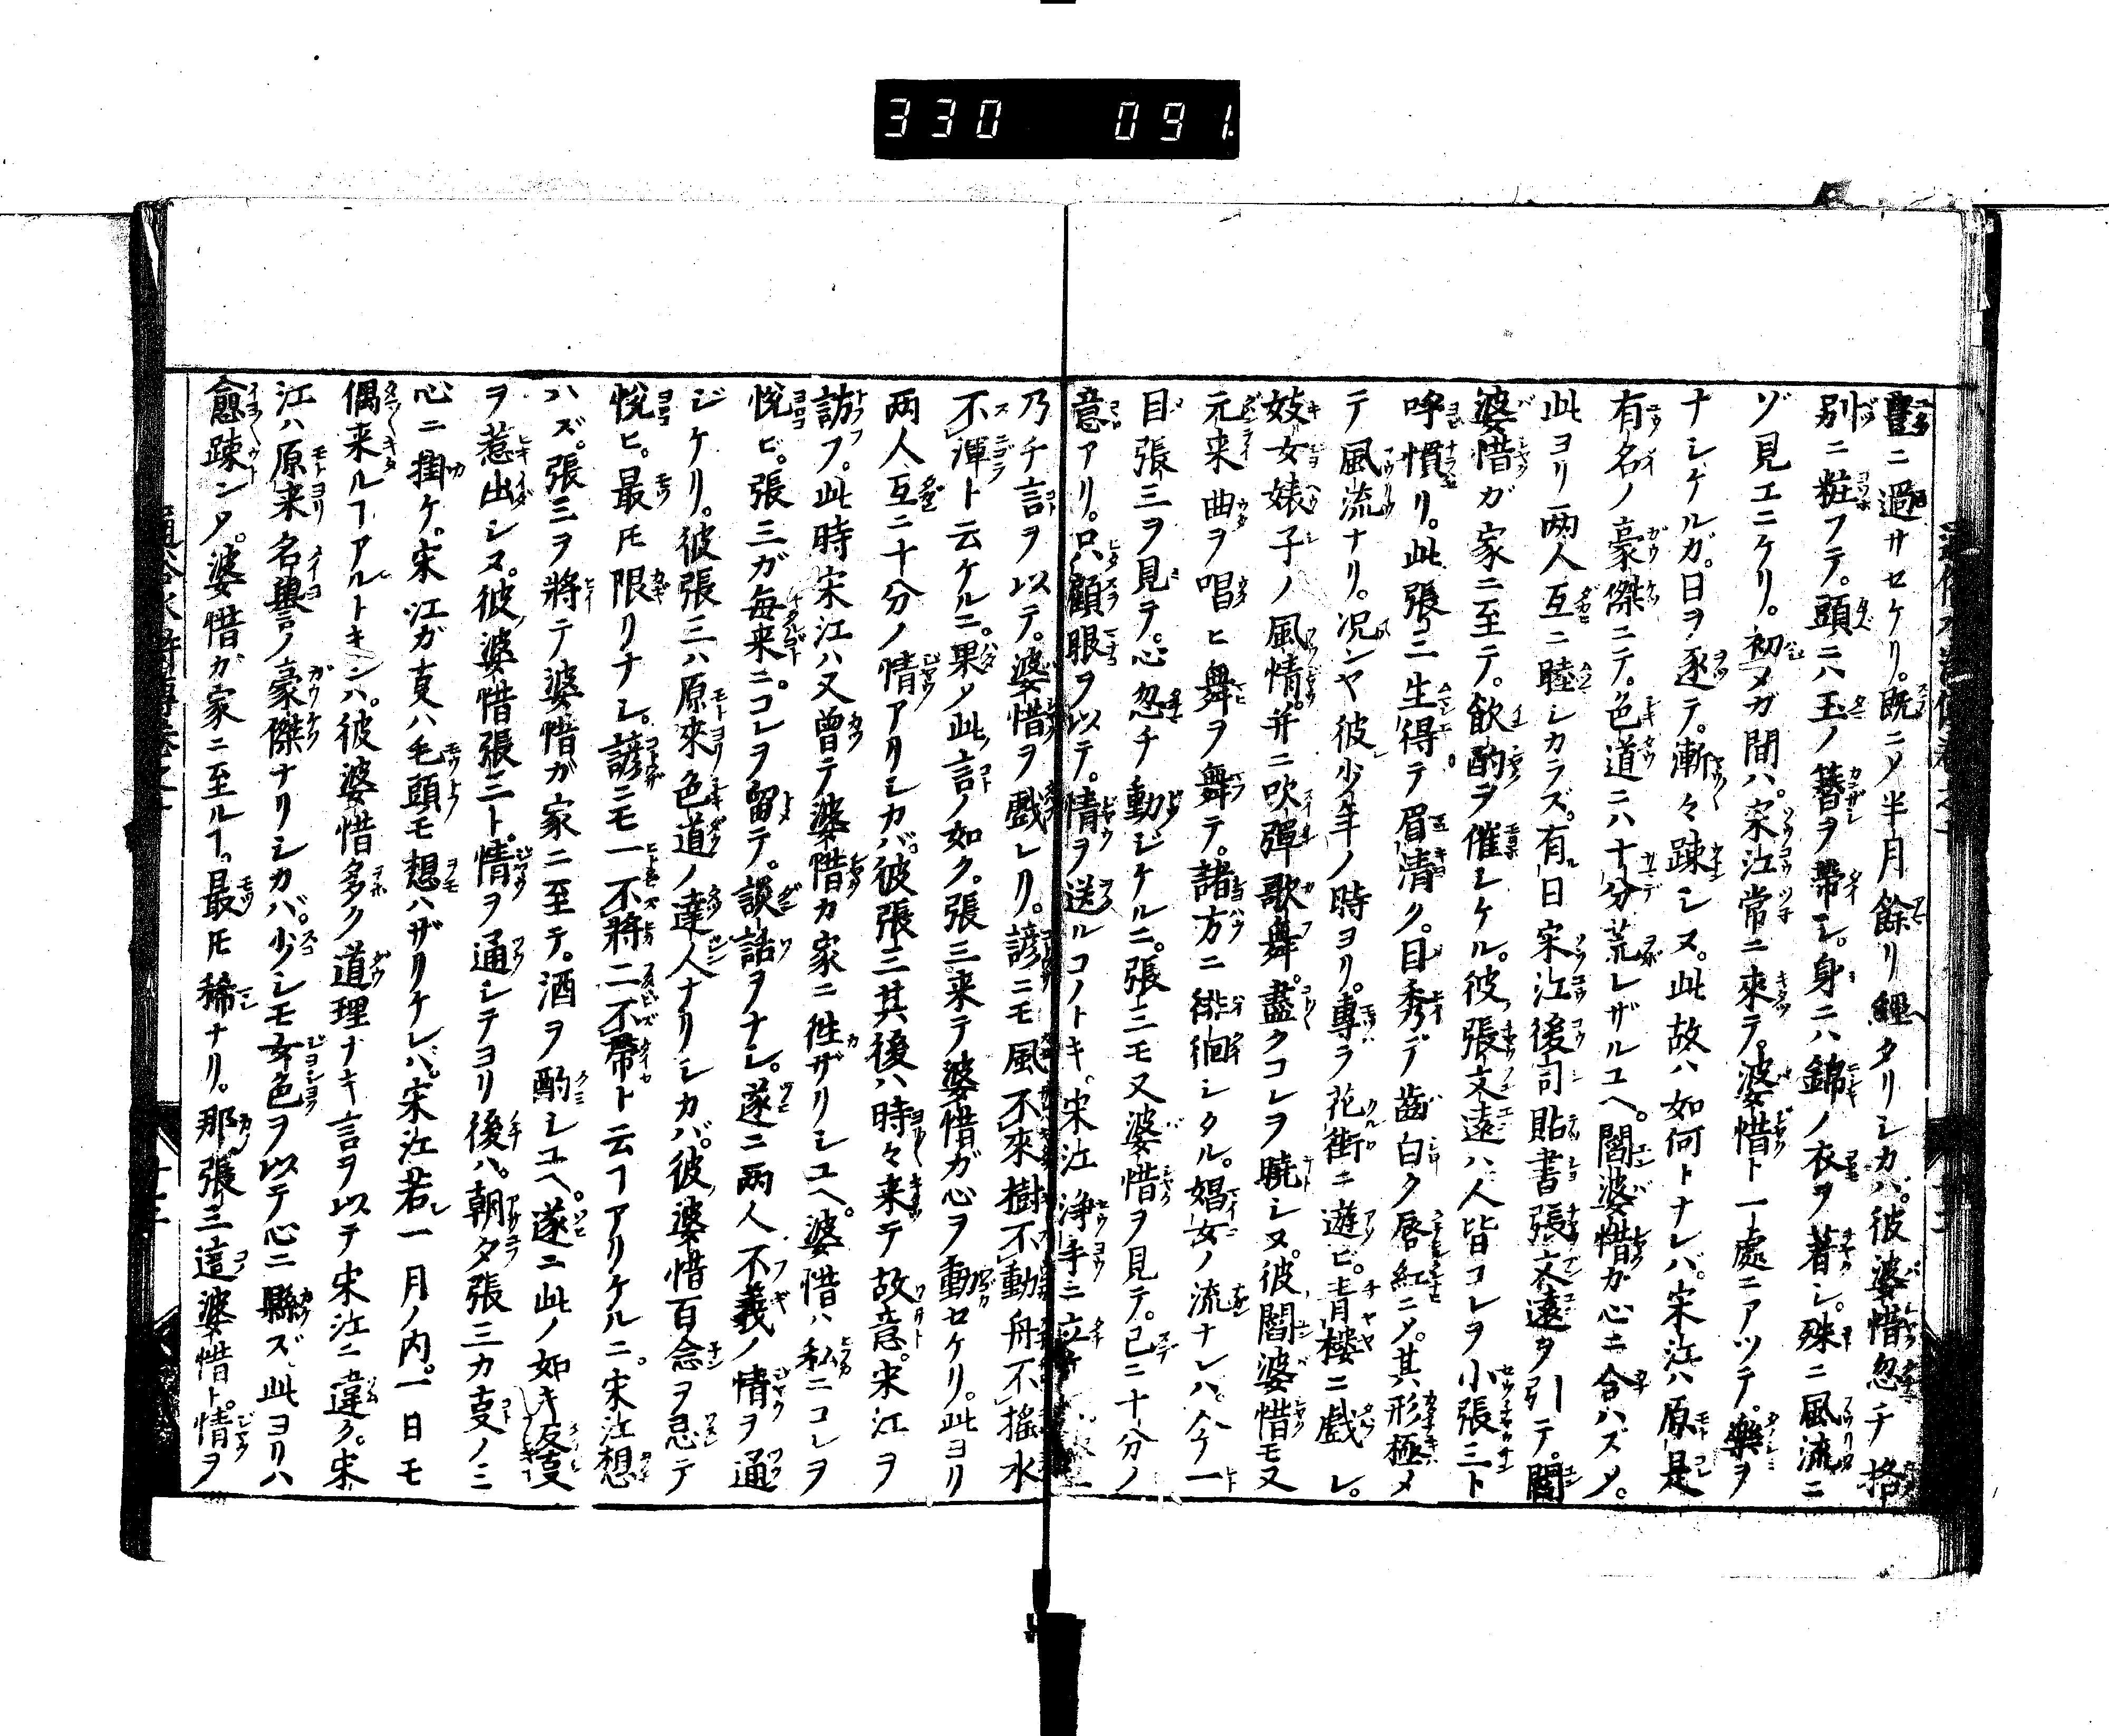 330 091.
豊ニ過サセケリ。既ニメ半月餘リ經タリシカバ。彼婆惜忽チ格
別ニ粧フテ。頭ニハ玉ノ簪ヲ帶シ。身ニハ錦ノ衣ヲ著シ。殊ニ風流ニ
ゾ見エニケリ。初メガ間ハ。宋江常ニ來テ。婆惜ト一處ニアツテ。樂ヲ
ナシケルガ。日ヲ逐テ。漸々疎シヌ。此故ハ如何トナレバ。宋江ハ原是
有名ノ豪傑ニテ。色道ニハ十分荒レザルユヘ。閻婆惜ガ心ニ合ハズメ。
此ヨリ両人互ニ睦シカラズ。有日宋江後司貼書張文遠ヲ引テ。閻
婆惜ガ家ニ至テ。飲酌ヲ催シケル。彼張文遠ハ人皆コレヲ小張三ト
呼慣リ。此張三生得テ眉清ク。目秀デ齒白ク唇紅ニメ。其形極メ
テ風流ナリ。况ンヤ彼少年ノ時ヨリ。專ラ花街ニ遊ビ。青樓ニ戲レ。
妓女婊子ノ風情。并ニ吹彈歌舞。盡クコレヲ曉シヌ。彼閻婆惜モ又
元来曲ヲ唱ヒ舞ヲ舞テ。諸方ニ徘徊シタル。娼女ノ流ナレハ。今一
目張三ヲ見テ。心忽チ動ジケルニ。張三モ又婆惜ヲ見テ。已ニ十分ノ
意アリ。只顧眼ヲ以テ。情ヲ送ルコノトキ。宋江淨手ニ立ケ
乃チ言ヲ以テ。婆惜ヲ戲レリ。諺ニモ風不來樹不動舟不搖水
不渾ト云ケルニ。果メ此言ノ如ク。張三来テ婆惜ガ心ヲ動セケリ。此ヨリ
両人互ニ十分ノ情アリシカバ。彼張三其後ハ時々来テ故意。宋江ヲ
訪フ。此時宋江ハ又曾テ婆惜カ家ニ徃ザリシユヘ。婆惜ハ私ニコレヲ
悅ビ。張三ガ每来ニ。コレヲ留テ。談話ヲナシ。遂ニ両人不義ノ情ヲ通
ジケリ。彼張三ハ原來色道ノ達人ナリシカバ。彼婆惜百念ヲ忌テ
悅ヒ。最モ限リナシ。諺ニモ一不將二不帶ト云フアリケルニ。宋江想
ハズ。張三ヲ將テ婆惜ガ家ニ至テ。酒ヲ酌シユヘ。遂ニ此ノ如キ反㕝
ヲ惹出シヌ。彼婆惜張三ト。情ヲ通シテヨリ後ハ。朝夕張三カ㕝ノミ
心ニ掛ケ。宋江ガ㕝ハ毛頭モ想ハザリケレバ。宋江若一月ノ内。一日モ
偶来ルヿアルトキンハ。彼婆惜多ク道理ナキ言ヲ以テ宋江ニ違ク。宋
江ハ原来名譽ノ豪傑ナリシカバ。少シモ女色ヲ以テ心ニ縣ズ。此ヨリハ
愈疎ンメ。婆惜ガ家ニ至ルヿ。最モ稀ナリ。那張三這婆惜ト。情ヲ